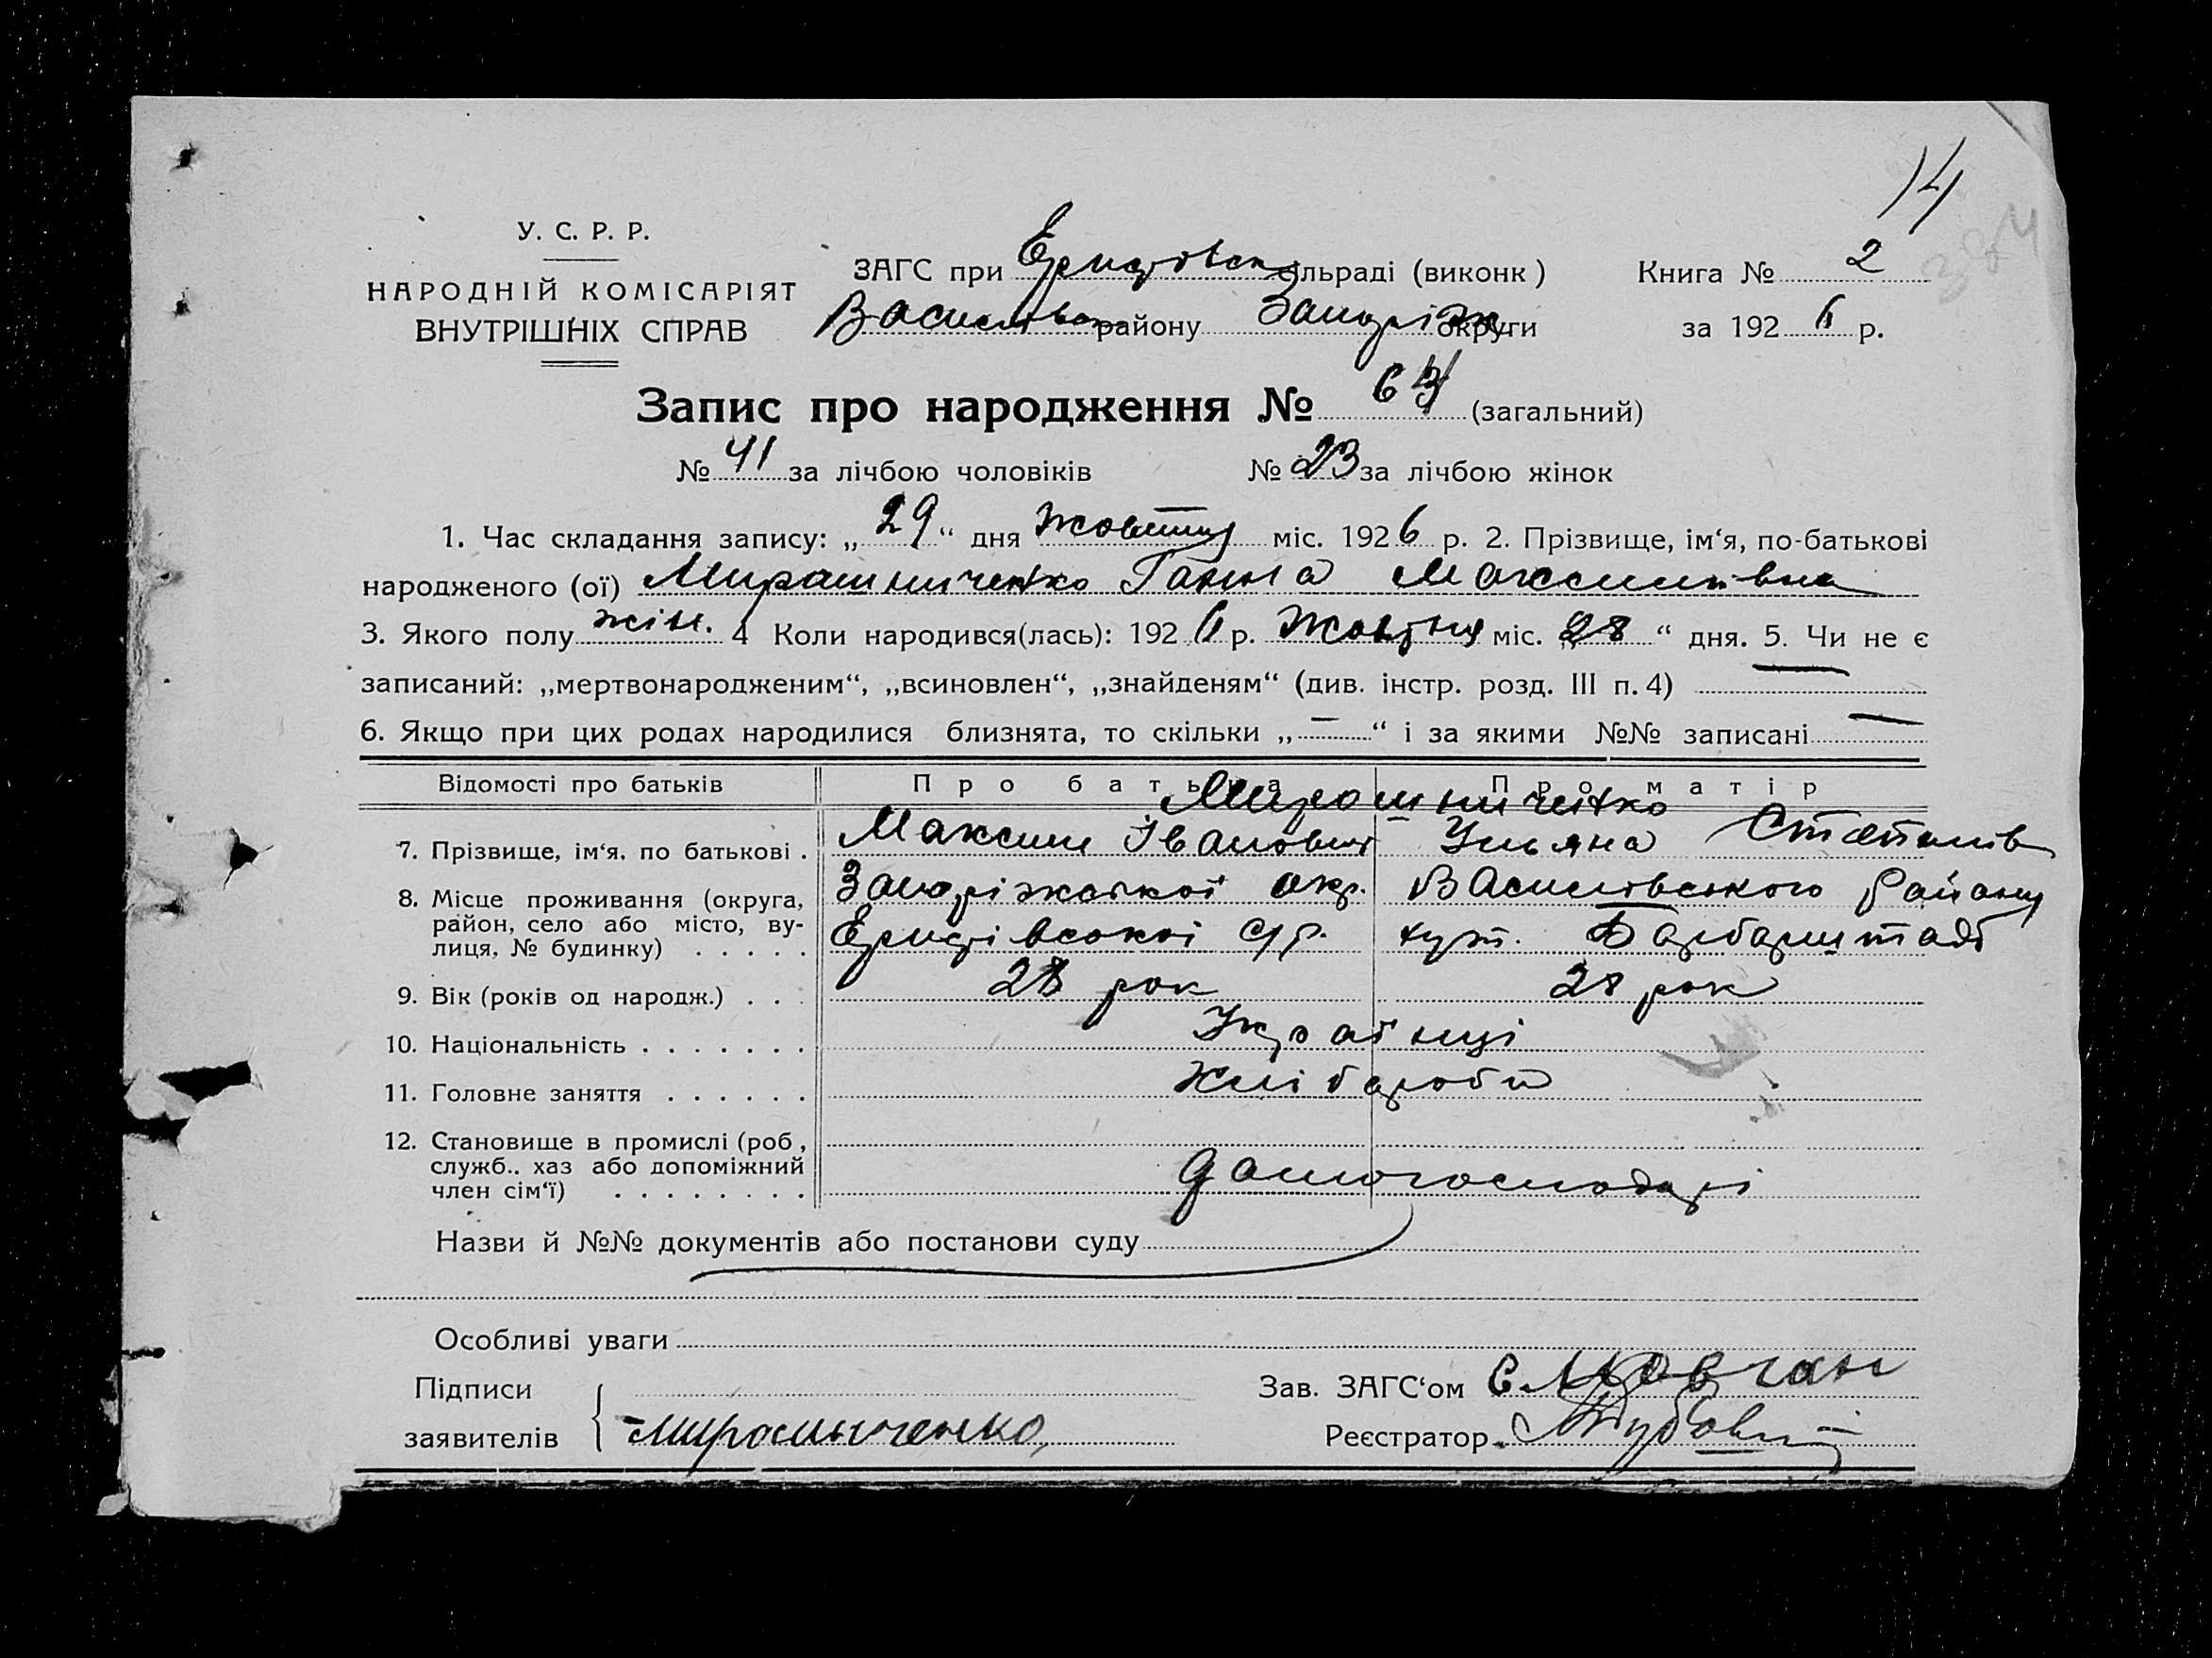 14
384
У. С. Р. Р.
НАРОДНІЙ КОМІСАРІЯТ
ВНУТРІШНІХ СПРАВ
ЗАГС при Еристовск сільраді (виконк)
Василівск району Запоріж округи
Книга № 2
за 1926 р.
Запис про народження № 64 (загальний)
№ 41 за лічбою чоловіків № 23 за лічбою жінок
1. Час складання запису: „29“ дня жовтня міс. 1926 р. 2. Прізвище, ім‘я, по-батькові
народженого (ої) Мирашниченко Ганна Максимівна
3. Якого полу жін. 4 Коли народився(лась): 1926 р. Жовтня міс. „28“ дня. 5. Чи не є
записаний: „мертвонародженим“, „всиновлен“, „знайденям“ (див. інстр. розд. III п. 4)
6. Якщо при цих родах народилися близнята, то скільки „—“ і за якими №№ записані —
Відомості про батьків Про батька Про матір
Мирошниченко
7. Прізвище, ім‘я, по батькові . Максим Іванович Ульяна
8. Місце проживання (округа, Запоріжської окр. Василівського району
район, село або місто, ву-
лиця, № будинку) . . . . . Еристівської с/р. хут.
9. Вік (років од народж.) . . . 28 рок 28 рок
10. Національність . . . . . . . Українці
11. Головне заняття . . . . . . Хлібароби
12. Становище в промислі (роб,
служб.. хаз або допоміжний
член сім‘ї) . . . . . . . . домогосподарі
Назви й №№ документів або постанови суду
Особливі уваги
Підписи
заявителів Мирошниченко
Зав. ЗАГС‘ом Є. Мовчан
Реєстратор